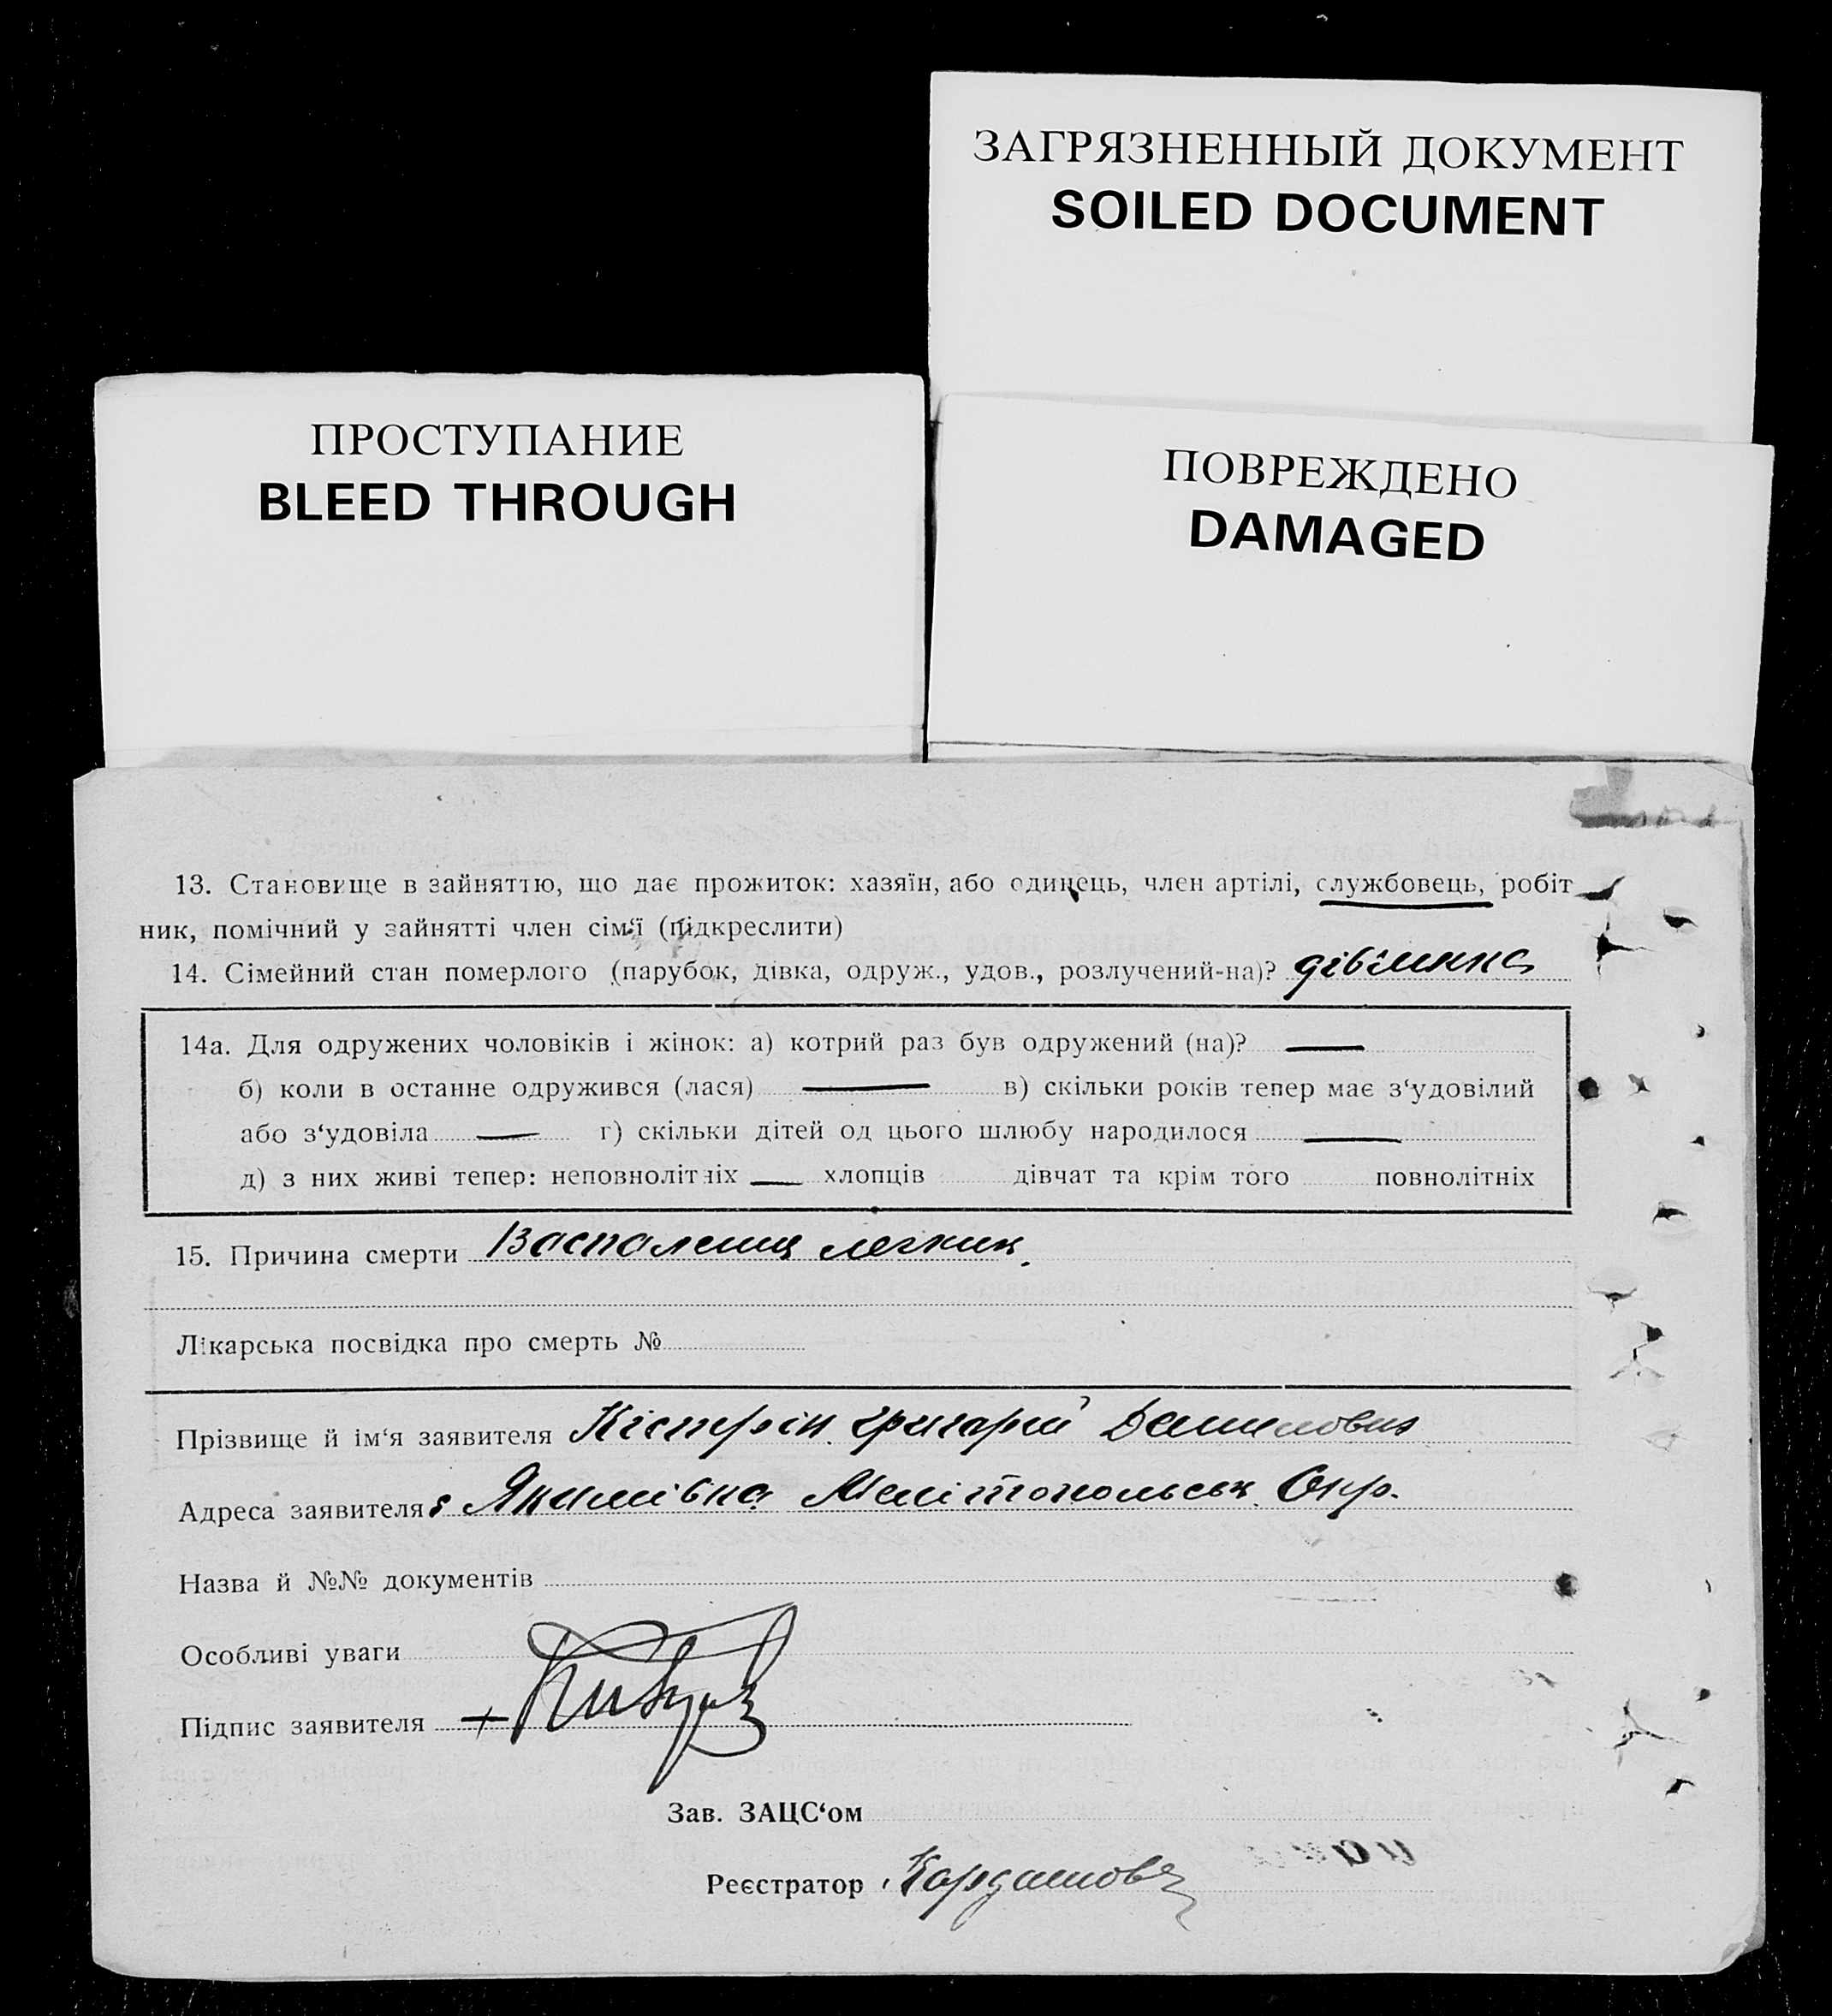 ЗАГРЯЗНЕННЫЙ ДОКУМЕНТ
SOILED DOCUMENT
ПРОСТУПАНИЕ
BLEED THROUGH
ПОВРЕЖДЕНО
DAMAGED
13. Становище в зайняттю, що дає прожиток: хазяїн, або одинець, член артілі, службовець, робіт
ник, помічний у зайнятті член сім‘ї (підкреслити)
14. Сімейний стан померлого (парубок, дівка, одруж., удов., розлучений-на)?
14а. Для одружених чоловіків і жінок: а) котрий раз був одружений (на)? —
б) коли в останне одружився (лася) — в) скільки років тепер має з‘удовілий
або з‘удовіла — г) скільки дітей од цього шлюбу народилося —
д) з них живі тепер: неповнолітніх — хлопців дівчат та крім того повнолітніх
15. Причина смерти Воспаления легких.
Лікарська посвідка про смерть №
Прізвище й ім‘я заявителя Григорій Данилович
Адреса заявителя: Якимівка Мелітопольськ. Окр.
Назва й №№ документів
Особливі уваги
Підпис заявителя +
Зав. ЗАЦС‘ом
Реєстратор